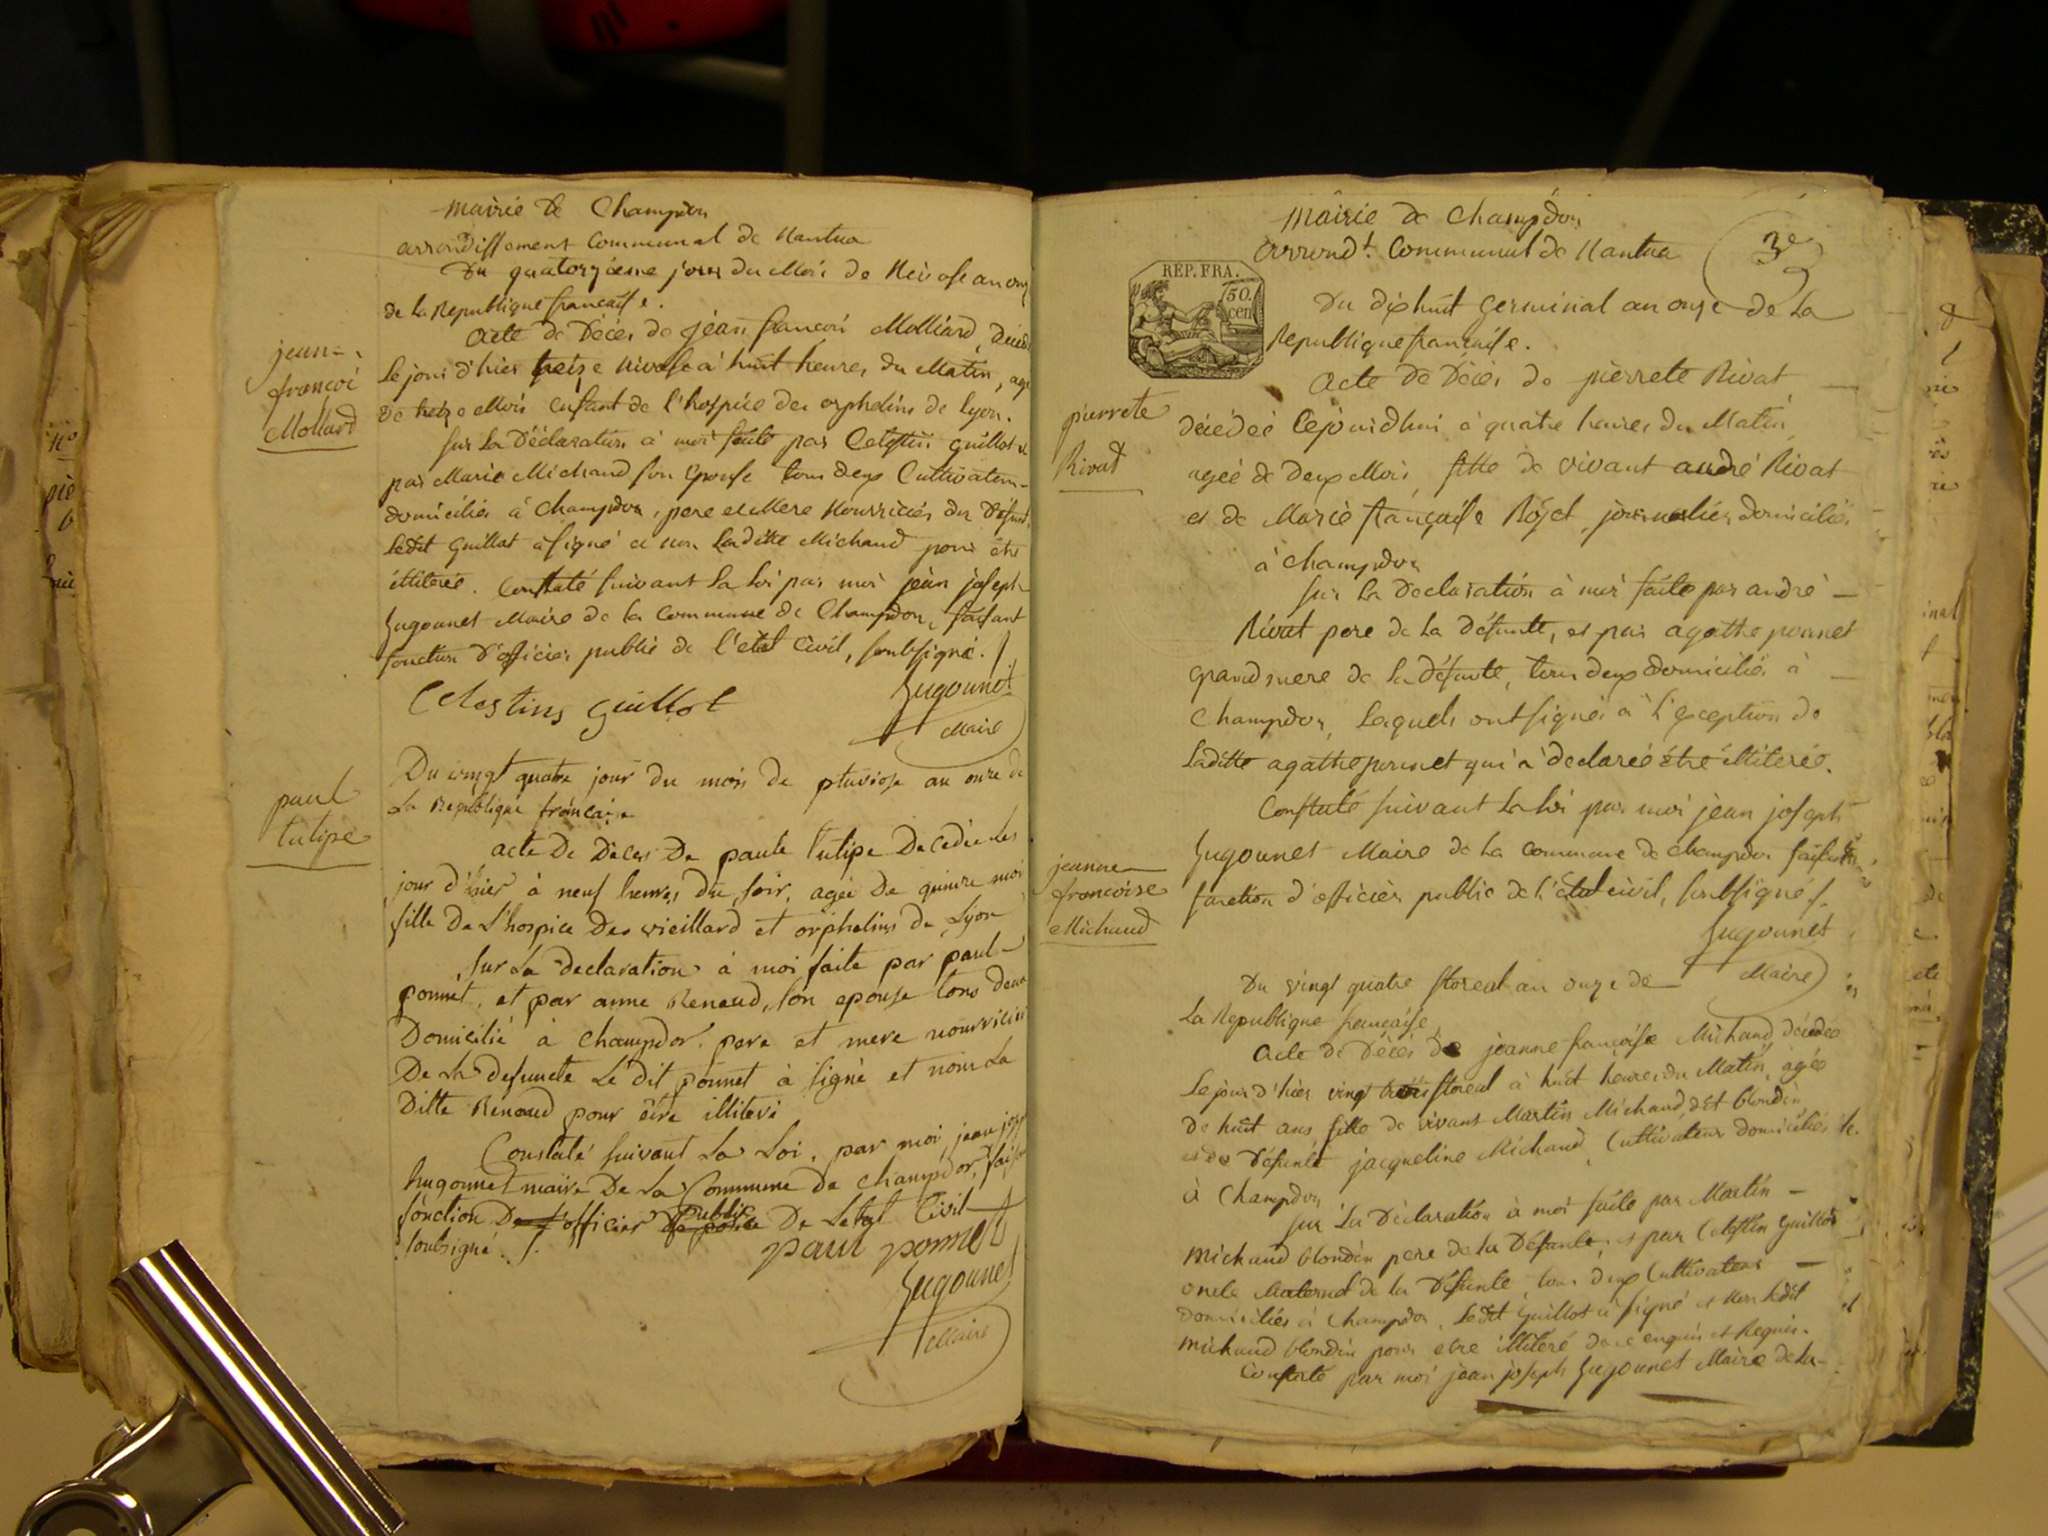 Mairie de Champdor
arrondissement Communal de Nantua
Du quatorzieme jour du Mois de Nivose an onze
de la Republique française.
acte de Décès de jean françoi Molliard, Décédé
Le jour d'hier treize nivose à huit heures du Matin, agé
de treize Mois enfant de l'hospice des orphelins de Lyon.
Sur la Déclaration à moi faite par Celestin guillot et
par Marie Michaud son Epouse tous deux Cultivateurs
domiciliés à Champdor, pere et Mere Nourriciers du Défunt.
Ledit guillot à signé et non Laditte Michaud pour être
illiterée. Constaté suivant la loi par moi jean joseph
hugonnet Maire de la Commune de Champdor, faisant
fonction d'officier public de l'etat Civil, soussigné.
Celestins guillot
hugonnet
Maire
jean
françoi
Mollard
Du vingt quatre jour du mois de pluviose an onze de
La Republique française
acte De Décès De paule tulipe Decedée Les
jour d'hier à neuf heures du soir, agée De quinze moi
fille De L'hospice Des vieillard et orphelins de Lyon
Sur La declaration à moi faite par paul
ponnet, et par anne Renaud, son epouse tous deux
Domicilié à champdor. pere et mere nourricier
De La defuncte Le dit ponnet à signé et non La
Ditte Renaud pour être illiteri
Constaté suivant La Loi, par moi jean jos
hugonnet maire De La Commune de champdor, fais
fonction De l'officier De police public De Letat Civil
soussigné.
paul ponnet
hugonnet
Maire
paul
tulipe
Mairie de Champdor
Arrond.t Communal de Nantua
3e
REP. FRA.
50.
cen
Du dix huit germinal an onze de La
Republique française.
Acte de Décès de pierrete Rivat
décédée Cejourd'hui à quatre heures du Matin
agée de deux Mois, fille de vivant andré Rivat
et de Marie française Rozet, journalier domiciliés
à Champdor
Sur la Declaration à moi faite par andré
Rivat pere de La défunte, et par agathe ponnet
grandmere de la défunte, tous deux domiciliés à
Champdor, Lesquels ont signés à l'exception de
Laditte agathe ponnet qui à declaréé être illiterée.
Constaté suivant La loi par moi jean joseph
hugonnet Maire de La commune de champdor faisant
fonction d'officier public de l'état civil, soussigné.
hugonnet
Maire
pierrete
Rivat
Du vingt quatre floreal an onze de
La Republique française,
acte de Décès de jeanne française Michaud décédée
Le jour d'hier vingt trois floreal à huit heures du Matin, agée
de huit ans fille de vivant Martin Michaud dit blondin
et de défunte jacqueline Michaud, Cultivateur domiciliés
à Champdor
Sur La Declaration à moi faite par Martin
Michaud blondin pere de la Défunte, et par Celestin Guillot
oncle Maternel de la Défunte, tous deux Cultivateurs
domiciliés à Champdor, Ledit Guillot à signé et non Ledit
Michaud blondin pour etre illiteré de ce enquis et Requis.
Constaté par moi jean joseph hugonnet Maire de la
jeanne
francoise
Michaud